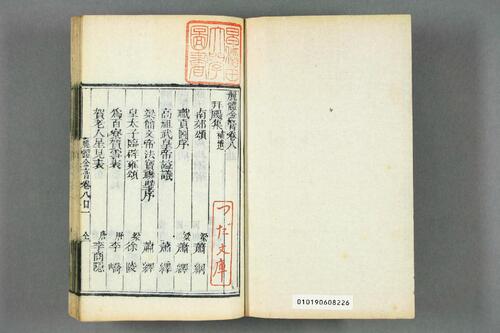 麗體金膏卷八
拜颺集 補遺
南郊頌 梁 蕭綱
職貢圖序 梁 蕭繹
高祖武皇帝諡議 蕭繹
梁簡文帝法寶聯璧序 蕭繹
皇太子臨辟雍頌 梁 徐陵
爲百寮賀雪表 唐 李嶠
賀老人星見表 唐 李商隱
麗體金膏卷八目 一
つだ文庫
010190608226